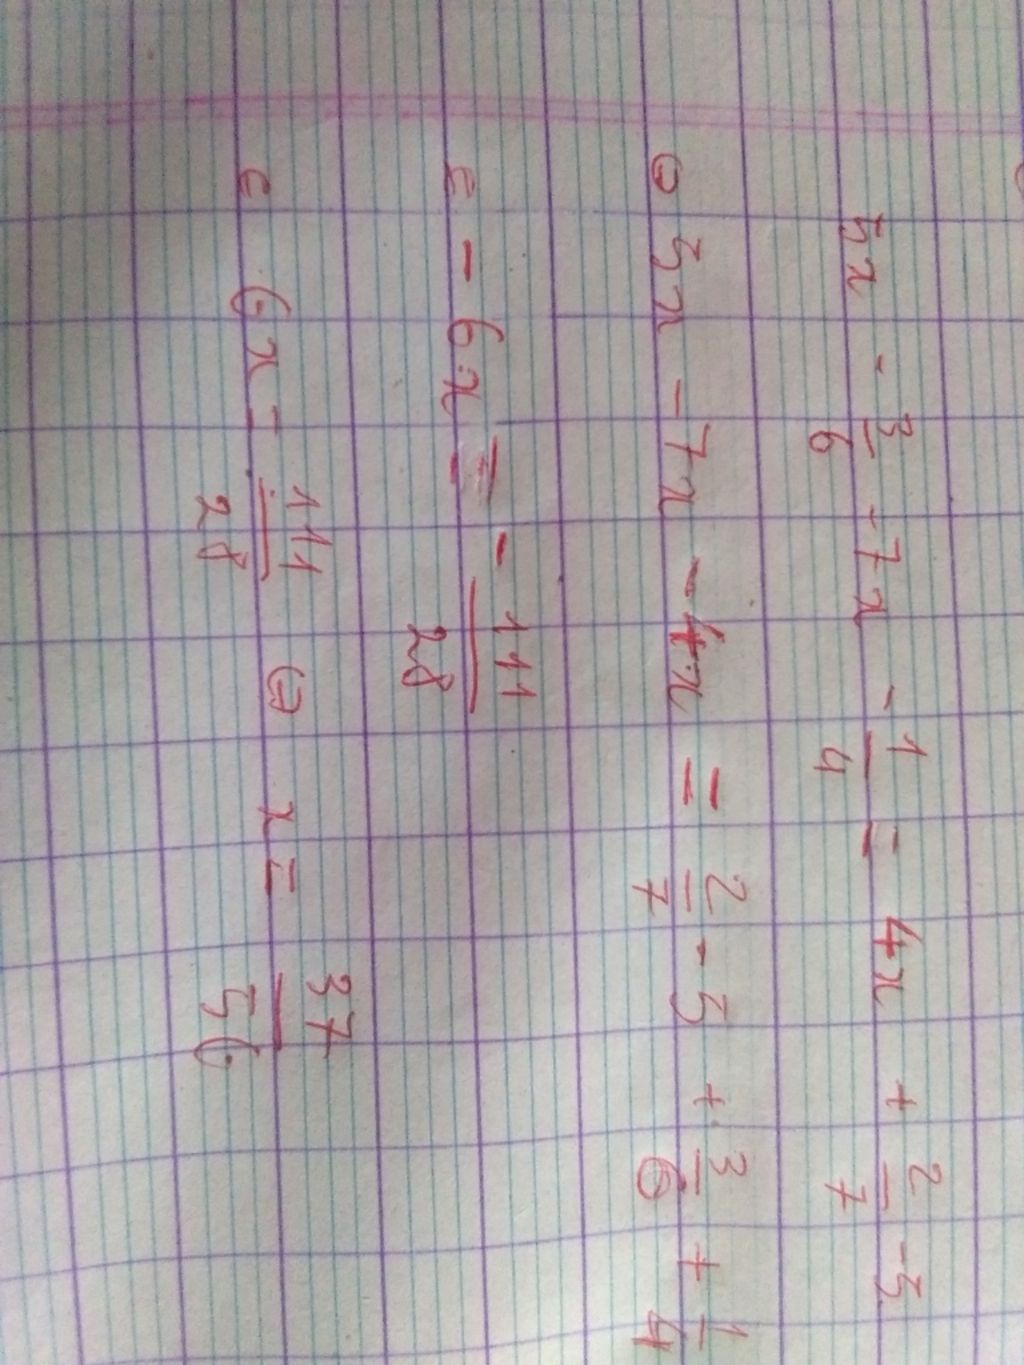 5x - 3/6 - 7x - 1/4 = 4x + 2/7 - 5
⇔ 5x - 7x - 4x = 2/7 - 5 + 3/6 + 1/4
- 6x = - 111/28
6x = 111/28 ⇔ x = 37/56